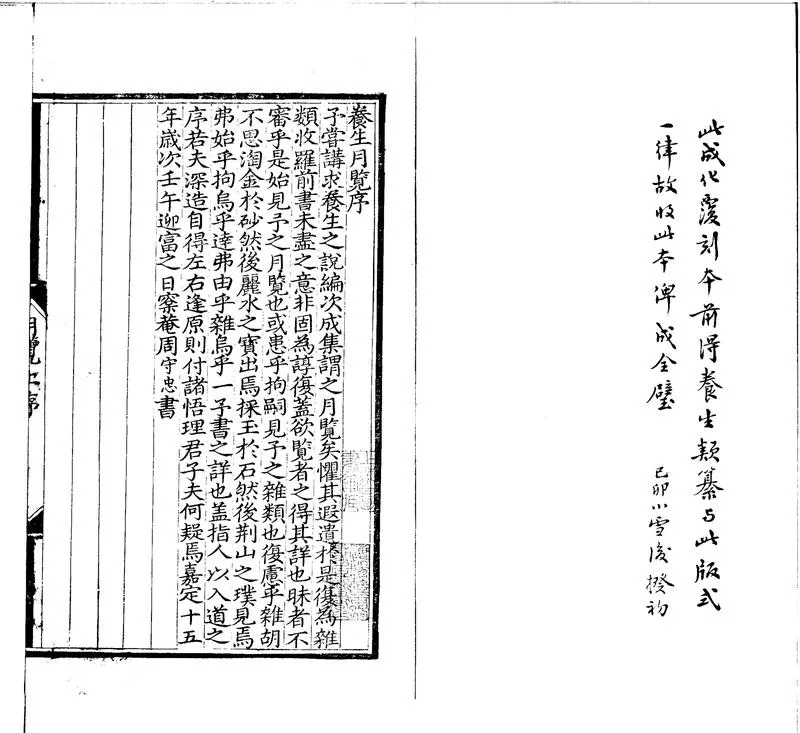 此成化覆刻本前得養生類纂与此版式
一律故收此本俾成全璧
己卯小雪後揆初
養生月覽序
予嘗講求養生之說編次成集謂之月覽矣懼其遐遺於是復為雜
類收羅前書未盡之意非固為諄復蓋欲覽者之得其詳也昧者不
審乎是始見予之月覽也或患乎拘嗣見予之雜類也復慮乎雜胡
不思淘金於砂然後麗水之寶出焉採玉於石然後荆山之璞見焉
弗始乎拘烏乎達弗由乎雜烏乎一予書之詳也盖指人以入道之
序若夫深造自得左右逢原則付諸悟理君子夫何疑焉嘉定十五
年歲次壬午迎富之日窠菴周守忠書
月覽上序